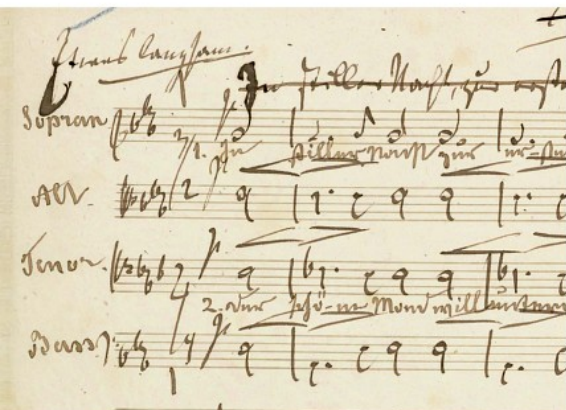 Etwas langsam.
In stiller Nacht, zur erste
Sopran
1. In stiller Nacht zur er-sten
Alt.
Tenor.
2. Der schö-ne Mond will untern
Bass.